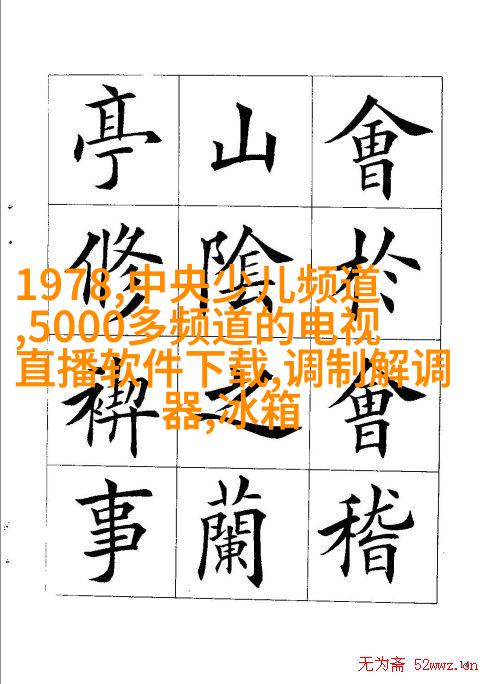 會於會稽
山陰之蘭
亭修禊事
1978,中央少儿频道
,5000多频道的电视
直播软件下载,调制解调
器,冰箱
无为斋 52wwz.cn